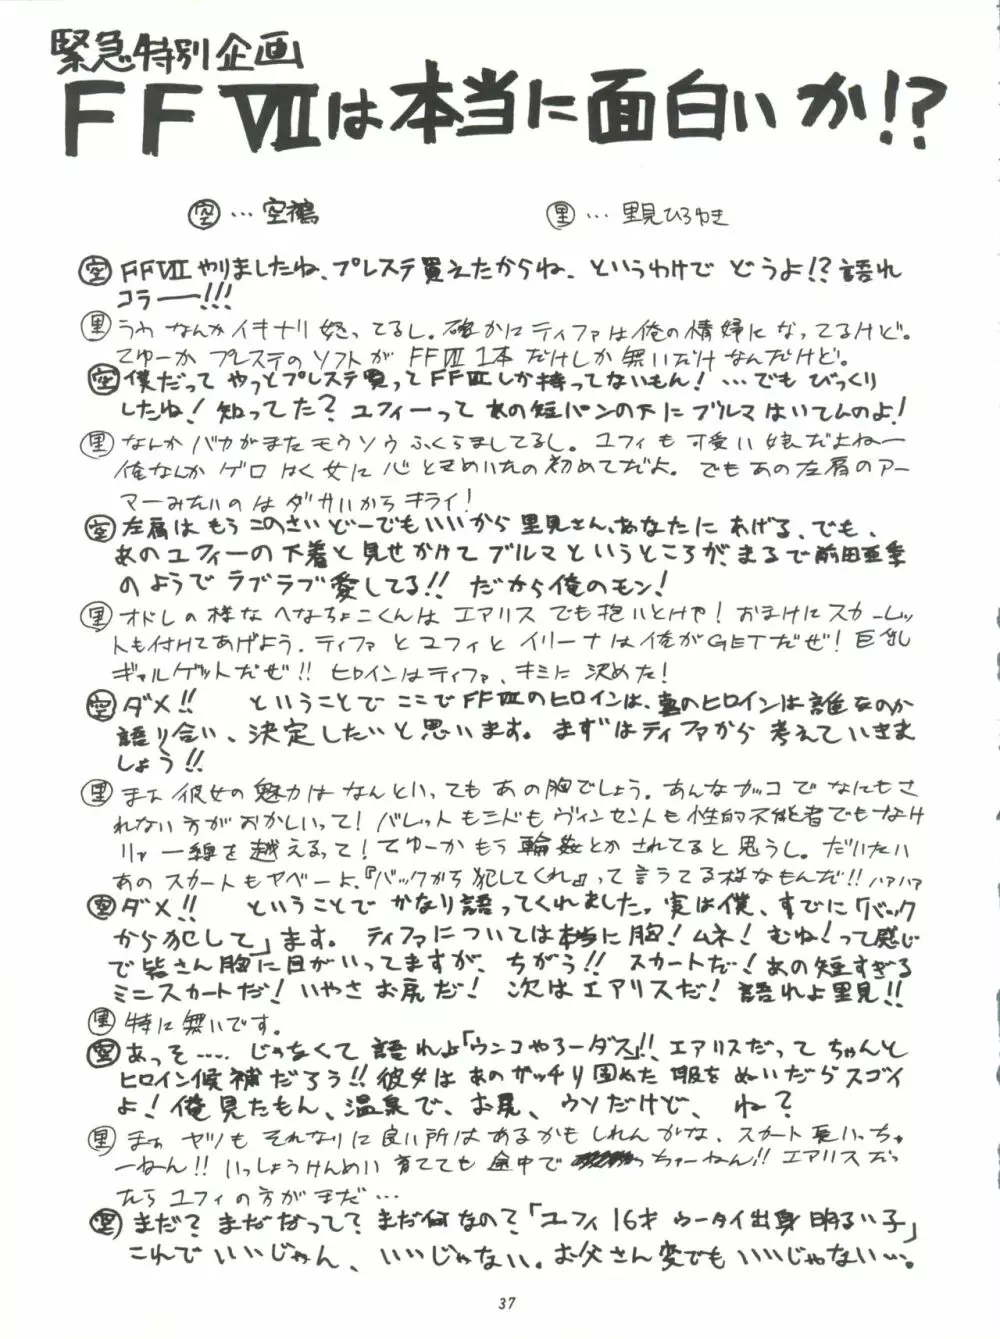 緊急特別企画
FFⅦは本当に面白いか!?
空…空鵺
里…里見ひろゆき
空 FFⅦやりましたね、プレステ買えたからね、というわけでどうよ!?語れ
コラーー!!!
里 うわなんかイキナリ怒ってるし。確かにティファは俺の情婦になってるけど。
てゆーかプレステのソフトがFFⅦ1本だけしか無いだけなんだけど。
空 僕だってやっとプレステ買ってFFⅦしか持ってないもん!…でもびっくり
したね!知ってた?ユフィーってあの短パンの下にブルマはいてんのよ!
里 なんかバカがまたモウソウふくらましてるし。ユフィも可愛い娘だよねー
俺なんかゲロはく女に心ときめいたの初めてだよ。でもあの左肩のアー
マーみたいのはダサいからキライ!
空 左肩はもうこのさいどーでもいいから里見さん、あなたにあげる、でも、
あのユフィーの下着と見せかけてブルマというところが、まるで前田亜季
のようでラブラブ愛してる!!だから俺のモン!
里 オドレの様なへなちょこくんはエアリスでも抱いとけや!おまけにスカーレッ
トも付けてあげよう。ティファとユフィとイリーナは俺がGETだぜ!巨乳
ギャルゲットだぜ!!ヒロインはティファ、キミに決めた!
空 ダメ!!ということでここでFFⅦのヒロインは、真のヒロインは誰なのか
語り合い、決定したいと思います。まずはティファから考えていきま
しょう!!
里 まァ彼女の魅力はなんといってもあの胸でしょう。あんなカッコでなにもさ
れない方がおかしいって!バレットもシドもヴィンセントも性的不能者でもなけ
りゃ一線を越えるって!てゆーかもう輪姦とかされてると思うし。だいたい
あのスカートもヤベーよ、『バックから犯してくれ』って言うてる様なもんだ!!ハァハァ
空 ダメ!!ということでかなり語ってくれました。実は僕、すでに「バック
から犯して」ます。ティファについては本当に胸!ムネ!むね!って感じ
で皆さん胸に目がいってますが、ちがう!!スカートだ!あの短すぎる
ミニスカートだ!いやさお尻だ!次はエアリスだ!語れよ里見!!
里 特に無いです。
空 あっそ‥‥。じゃなくて語れよ「ウンコやろーダス」!!エアリスだってちゃんと
ヒロイン候補だろう!!彼女はあのガッチリ固めた服をぬいだらスゴイ
よ!俺見たもん、温泉で、お尻、ウソだけど、ね?
里 まァヤツもそれなりに良い所はあるかもしれんがな、スカート長いっちゃ
ーねん!!いっしょうけんめい育てても途中で
っちゃーねん!!エアリスだっ
たらユフィの方がまだ…
空 まだ?まだなって?まだ何なの?「ユフィ16才ウータイ出身明るい子」
これでいいじゃん、いいじゃない。お父さん変でもいいじゃない…。
37